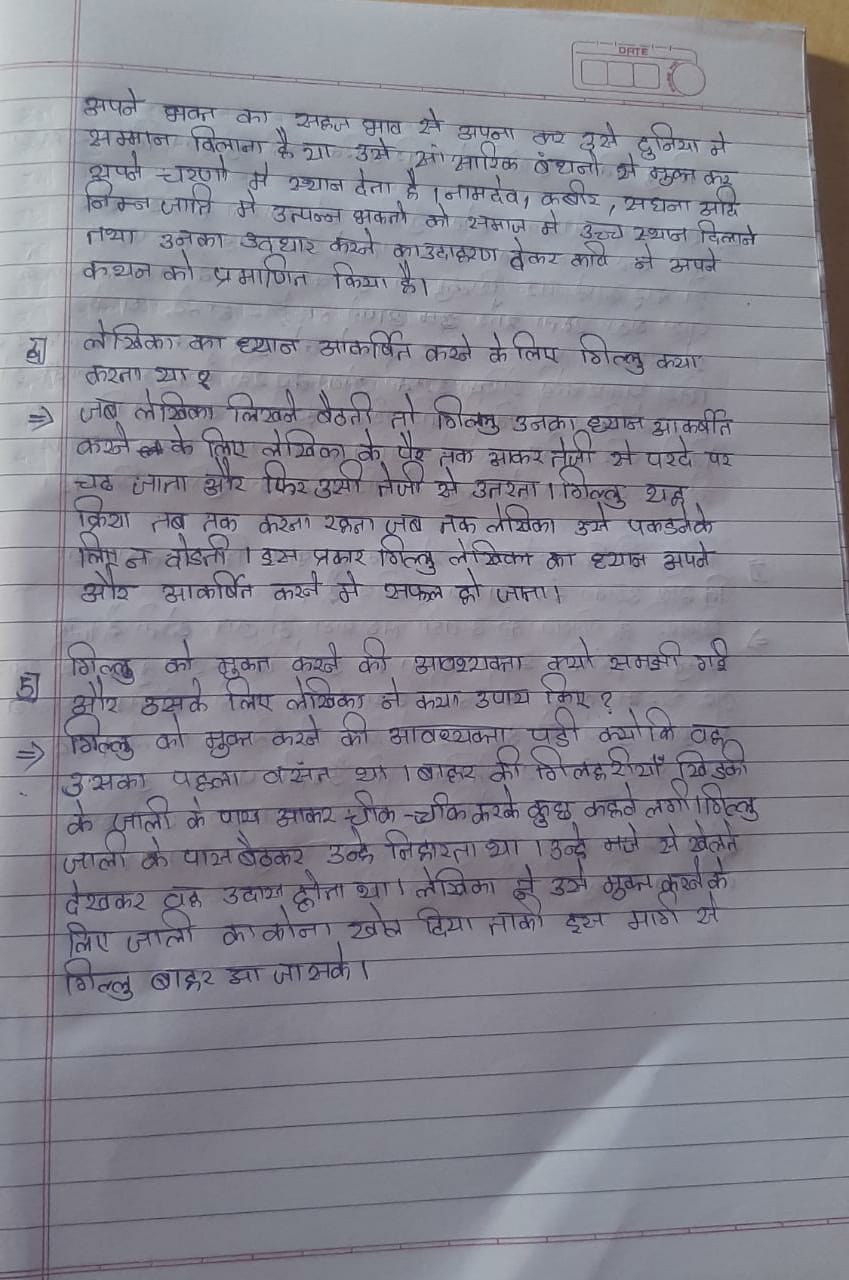 DATE
अपने भक्त का सहज भाव से अपना कर उसे दुनिया मे
सम्मान दिलाना है या उसे सांसारिक बंधनो से मुक्त कर
अपने चरणो मे स्थान देता है। नामदेव, कबीर, सधना आदि
निम्न जाति मे उत्पन्न भक्तो को समाज मे उच्च स्थान दिलाने
तथा उनका उदधार करने का उदाहरण देकर कवि ने अपने
कथन को प्रमाणित किया है।
लेखिका का ध्यान आकर्षित करने के लिए गिल्लु क्या
करता था?
⇒ जब लेखिका लिखने बैठती तो गिल्लु उनका ध्यान आकर्षीत
करने के लिए लेखिका के पैर तक आकर तेजी से परदे पर
चढ जाता और फिर उसी तेजी से उतरता। गिल्लु यह
क्रिया तब तक करता रहता जब तक लेखिका उसे पकडनेके
लिए न दोडती। इस प्रकार गिल्लु लेखिका का ध्यान अपने
और आकर्षित करने मे सफल हो जाता।
5] गिल्लु को मुक्त करने की आवश्यकता क्यो समझी गई
और उसके लिए लेखिका ने क्या उपाय किए?
⇒ गिल्लु को मुक्त करने की आवश्यकता पडी क्योकि वह
उसका पहला वसंत था। बाहर की गिलहरीयाँ खिडकी
के जाली के पास आकर चीक-चीक करके कुछ कहने लगी। गिल्लु
जाली के पास बैठकर उन्हे निहारता था। उन्हे मजे से खेलते
देखकर वह उदास होता था। लेखिका ने उसे मुक्त करने के
लिए जाली का कोना खोल दिया ताकी इस मार्ग से
गिल्लु बाहर आ जा सके।